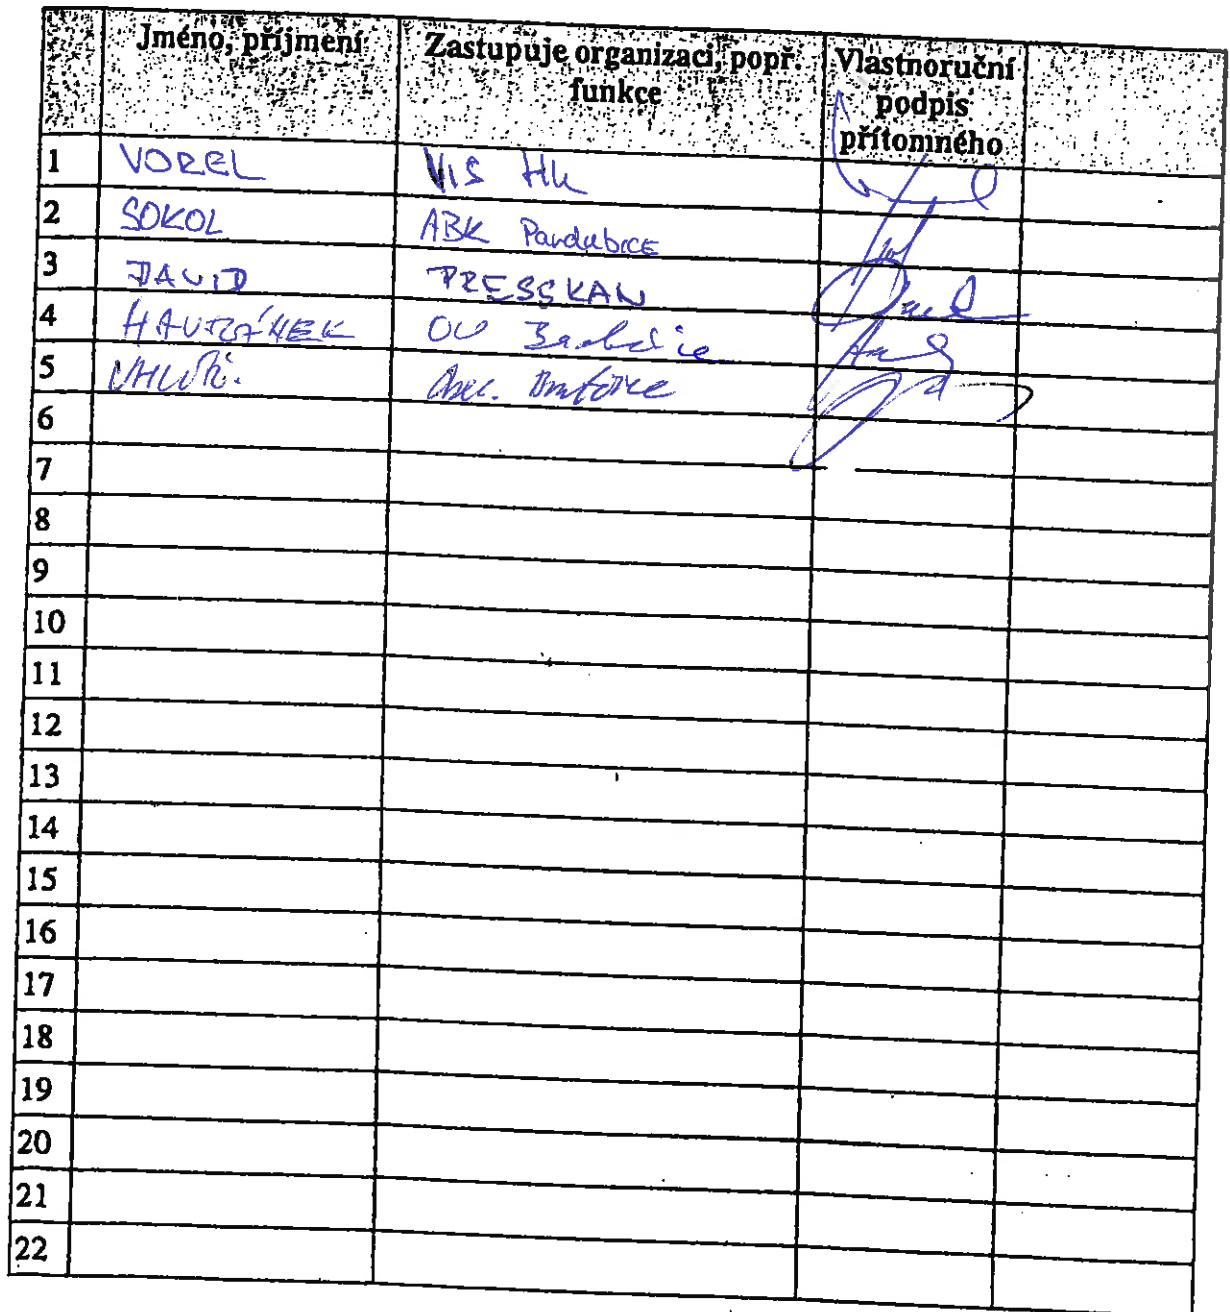 Jméno, příjmení
Zastupuje organizaci, popř.
funkce
Vlastnoruční
podpis
přítomného
1 VOREL VIS HK
2 SOKOL ABK Pardubice
3 DAVID PRESSKAN
4 HAVRÁNEK OÚ
5
6
7
8
9
10
11
12
13
14
15
16
17
18
19
20
21
22